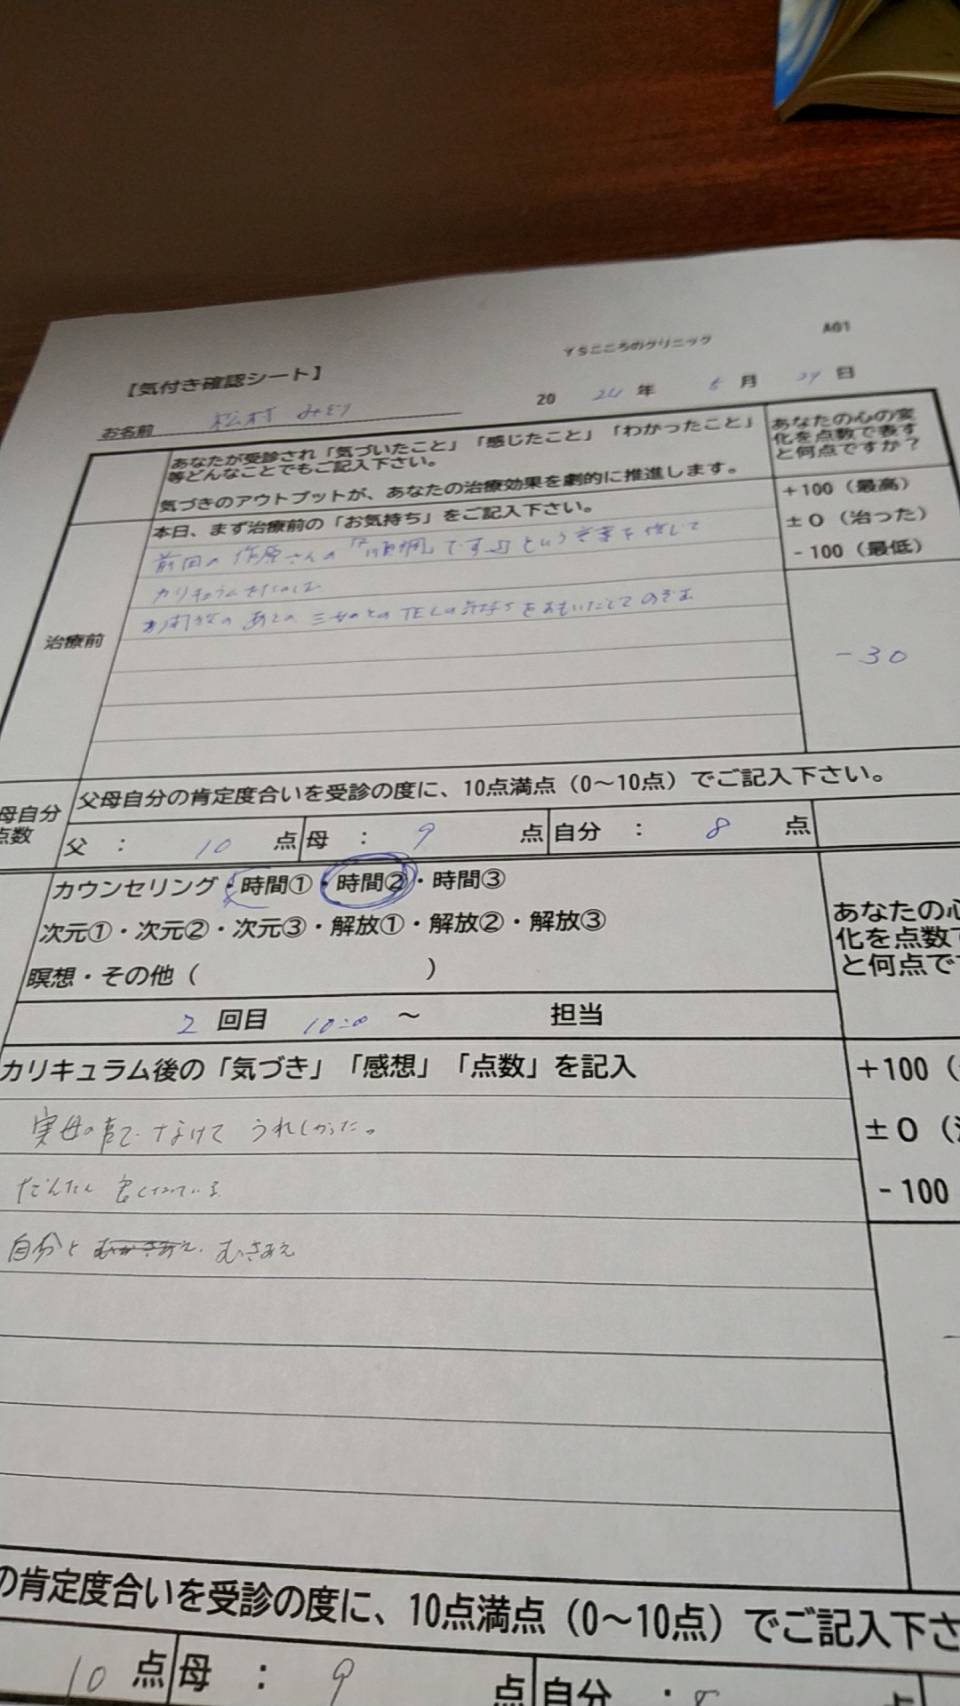 YSこころのクリニック
A01
【気付き確認シート】
お名前 松村 みどり
2024年 6月 29日
あなたが受診され「気づいたこと」「感じたこと」「わかったこと」
等どんなことでもご記入下さい。
気づきのアウトプットが、あなたの治療効果を劇的に推進します。
あなたの心の変
化を点数で表す
と何点ですか？
+100（最高）
±0（治った）
-100（最低）
治療前
本日、まず治療前の「お気持ち」をご記入下さい。
前回の さんの です』という言葉を
カリキュラム
のあとの TELの気持ちをおもいだしてのぞむ
-30
母自分
点数
父母自分の肯定度合いを受診の度に、10点満点（0～10点）でご記入下さい。
父 ： 10 点 母 ： 9 点 自分 ： 8 点
カウンセリング・時間①・時間②・時間③
次元①・次元②・次元③・解放①・解放②・解放③
瞑想・その他（ ）
あなたの心
化を点数で
と何点で
2 回目 10:00 ～ 担当
カリキュラム後の「気づき」「感想」「点数」を記入
+100（
±0（
-100
実母の 声で なけて うれしかった。
だんだん 良くなっている
自分と むきあえ
の肯定度合いを受診の度に、10点満点（0～10点）でご記入下さ
10 点 母 ： 9 点 自分 ： 8 点